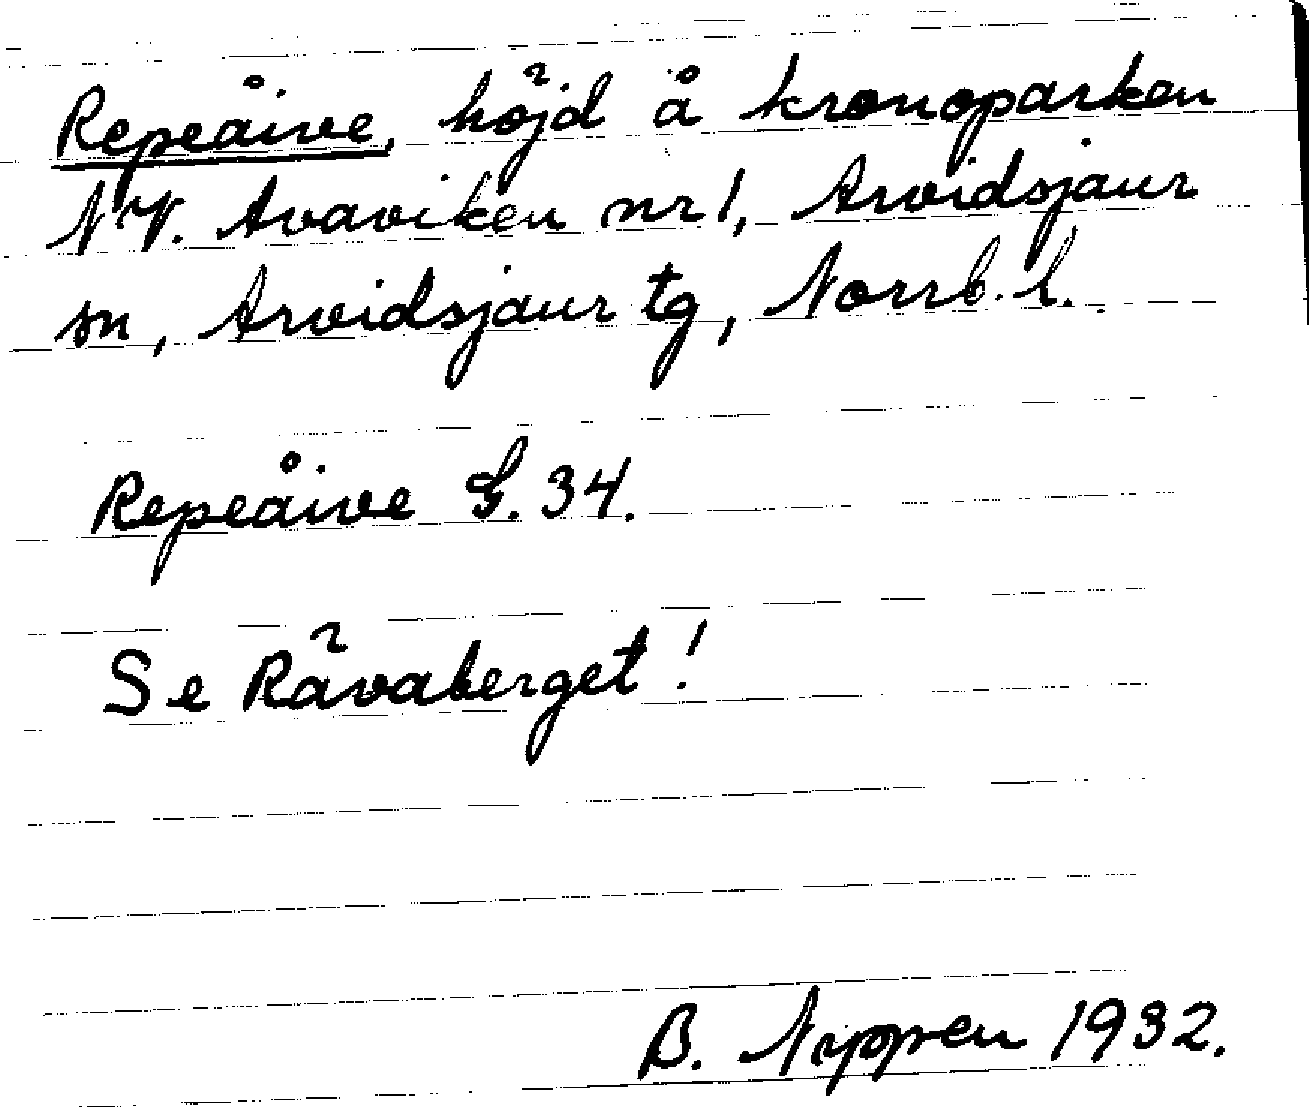 Repeåive, höjd å kronoparken
NV. Avaviken nr 1, Arvidsjaur
sn, Arvidsjaur tg, Norrb. l.
Repeåive G. 34.
Se Rävaberget!
B. Nippen 1932.